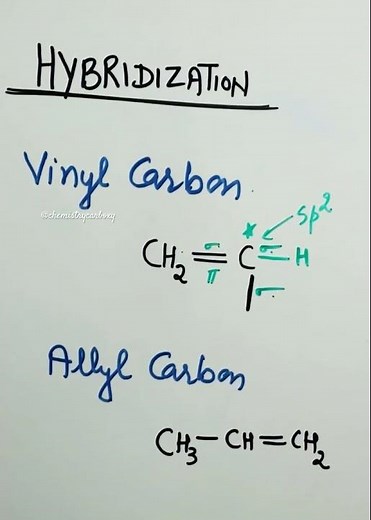 HYBRIDIZATION
Vinyl Carbon.
@chemistrycarboxy
* sp²
CH₂ = C - H
σ σ
π
σ
Allyl Carbon
CH₃ - CH = CH₂